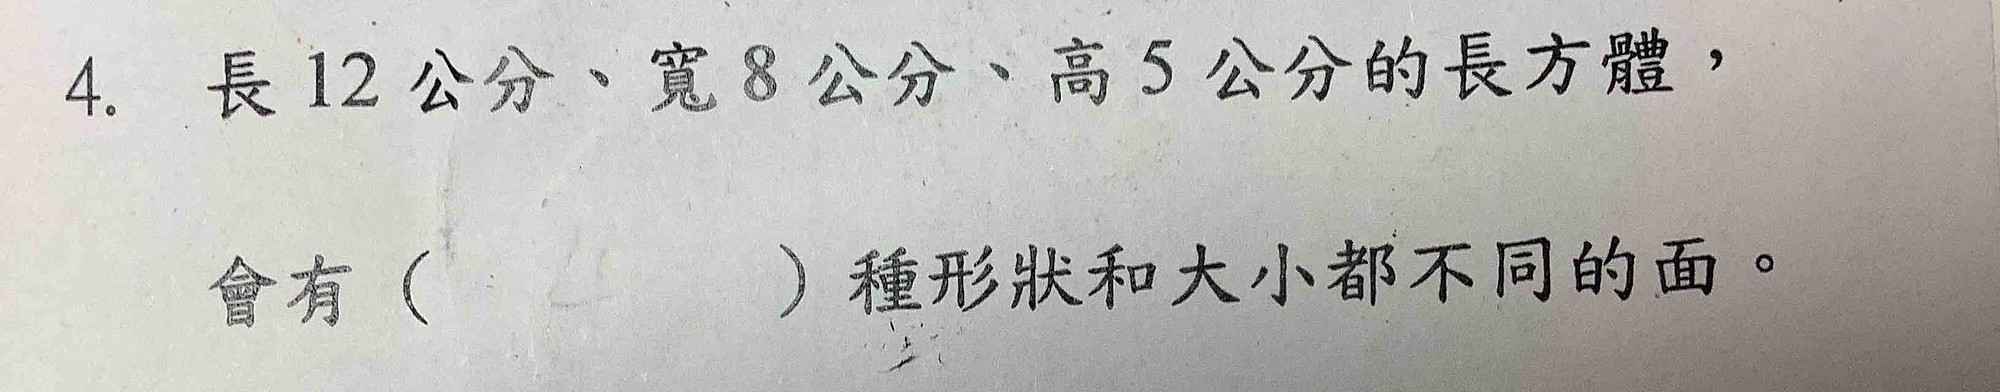 4. 長 12 公分、寬 8 公分、高 5 公分的長方體，
會有（　　　　）種形狀和大小都不同的面。